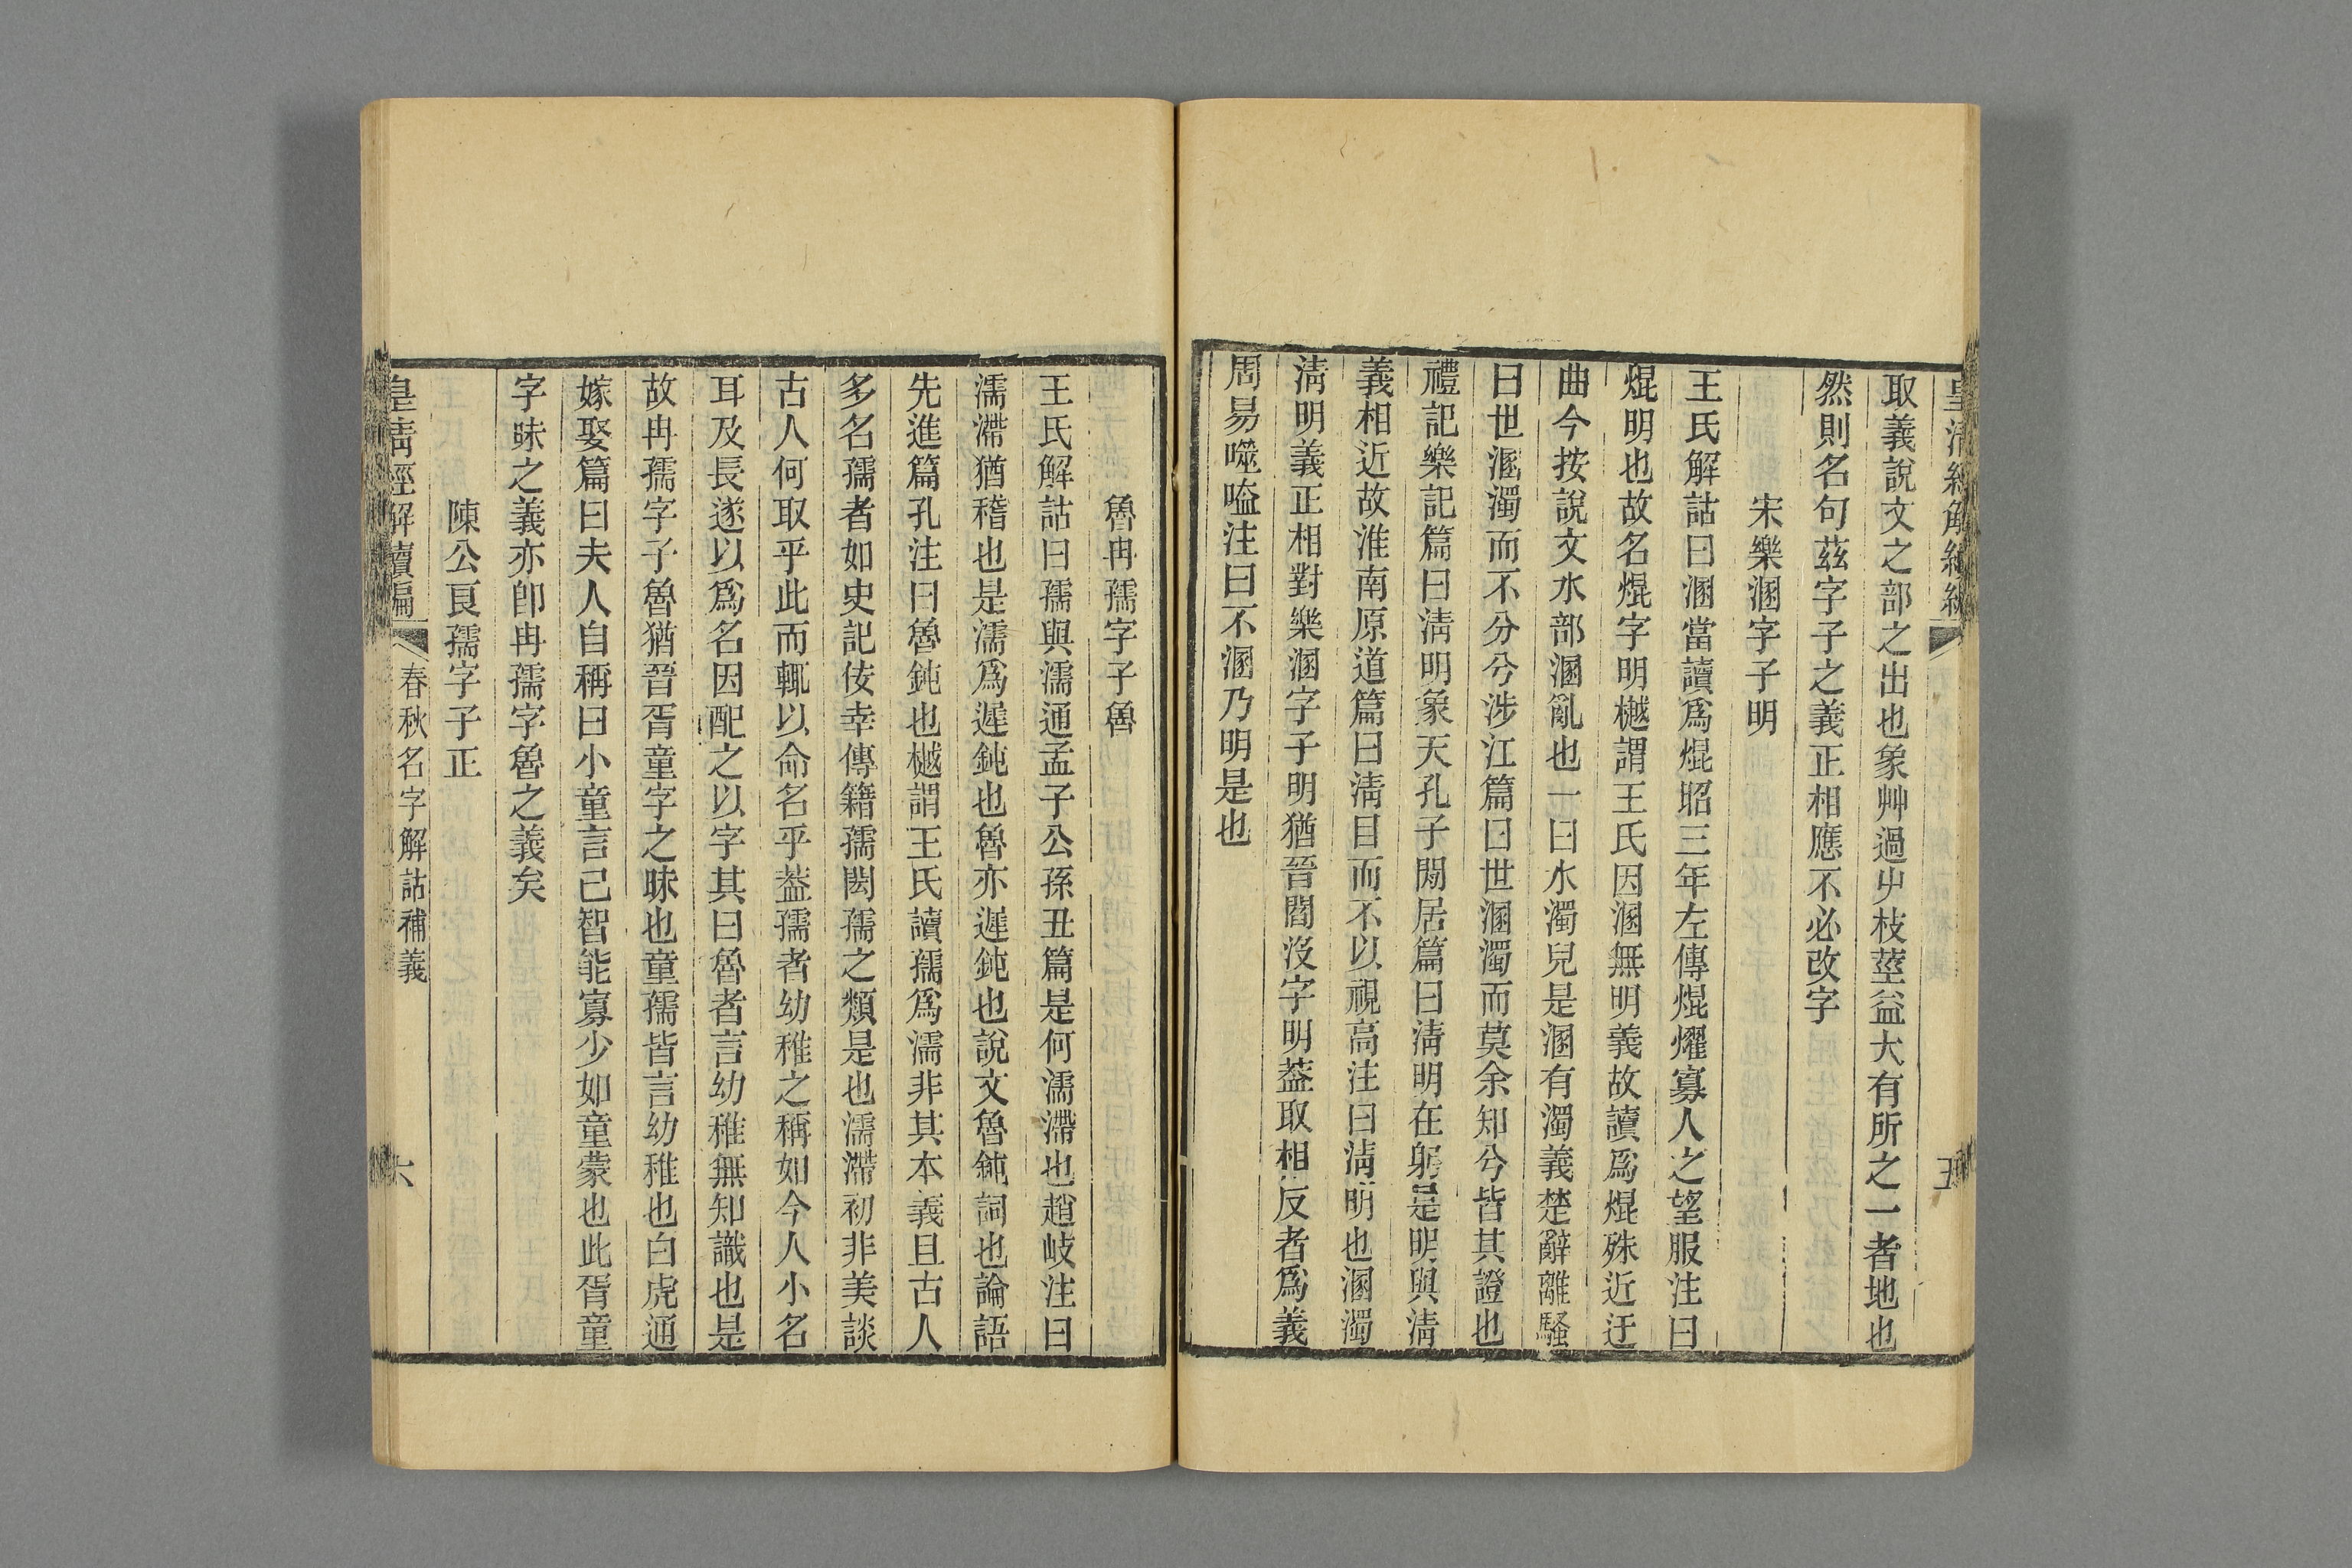 皇清經解續編
五
取義說文之部之出也象艸過屮枝莖益大有所之一者地也
然則名句茲字子之義正相應不必改字
宋樂溷字子明
王氏解詁曰溷當讀爲焜昭三年左傳焜燿寡人之望服注曰
焜明也故名焜字明樾謂王氏因溷無明義故讀爲焜殊近迂
曲今按說文水部溷亂也一曰水濁皃是溷有濁義楚辭離騷
曰世溷濁而不分兮涉江篇曰世溷濁而莫余知兮皆其證也
禮記樂記篇曰淸明象天孔子閒居篇曰淸明在躬是明與淸
義相近故淮南原道篇曰淸目而不以視高注曰淸明也溷濁
淸明義正相對樂溷字子明猶晉閻沒字明葢取相反者爲義
周易噬嗑注曰不溷乃明是也
魯冉孺字子魯
王氏解詁曰孺與濡通孟子公孫丑篇是何濡滯也趙岐注曰
濡滯猶稽也是濡爲遲鈍也魯亦遲鈍也說文魯鈍詞也論語
先進篇孔注曰魯鈍也樾謂王氏讀孺爲濡非其本義且古人
多名孺者如史記佞幸傳籍孺閎孺之類是也濡滯初非美談
古人何取乎此而輒以命名乎葢孺者幼稚之稱如今人小名
耳及長遂以爲名因配之以字其曰魯者言幼稚無知識也是
故冉孺字子魯猶晉胥童字之昧也童孺皆言幼稚也白虎通
嫁娶篇曰夫人自稱曰小童言己智能寡少如童蒙也此胥童
字昧之義亦卽冉孺字魯之義矣
陳公良孺字子正
皇淸經解續編
春秋名字解詁補義
六